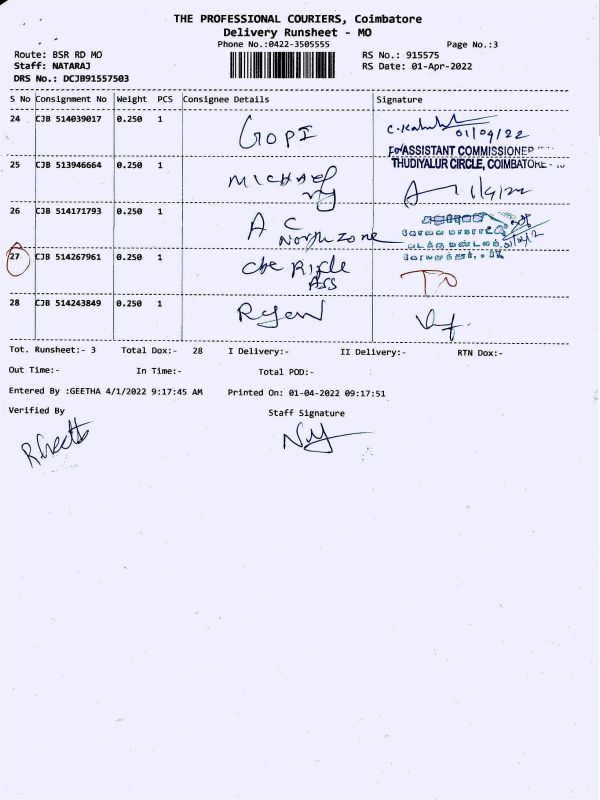 THE PROFESSIONAL COURIERS, Coimbatore
Delivery Runsheet - MO
Phone No.:0422-3505555
Page No.:3
Route: BSR RD MO
RS No.: 915575
Staff: NATARAJ
RS Date: 01-Apr-2022
DRS No.: DCJB91557503
S No Consignment No Weight PCS Consignee Details Signature
24 CJB 514039017 0.250 1 GOPI
01/04/22
For ASSISTANT COMMISSIONER
THUDIYALUR CIRCLE, COIMBATORE -
25 CJB 513946664 0.250 1 MICHAEL
1/4/22
26 CJB 514171793 0.250 1 A C
North zone
27 CJB 514267961 0.250 1 cbe Rifle
Ass
28 CJB 514243849 0.250 1 Ryan
Tot. Runsheet:- 3 Total Dox:- 28 I Delivery:- II Delivery:- RTN Dox:-
Out Time:- In Time:- Total POD:-
Entered By :GEETHA 4/1/2022 9:17:45 AM Printed On: 01-04-2022 09:17:51
Verified By Staff Signature